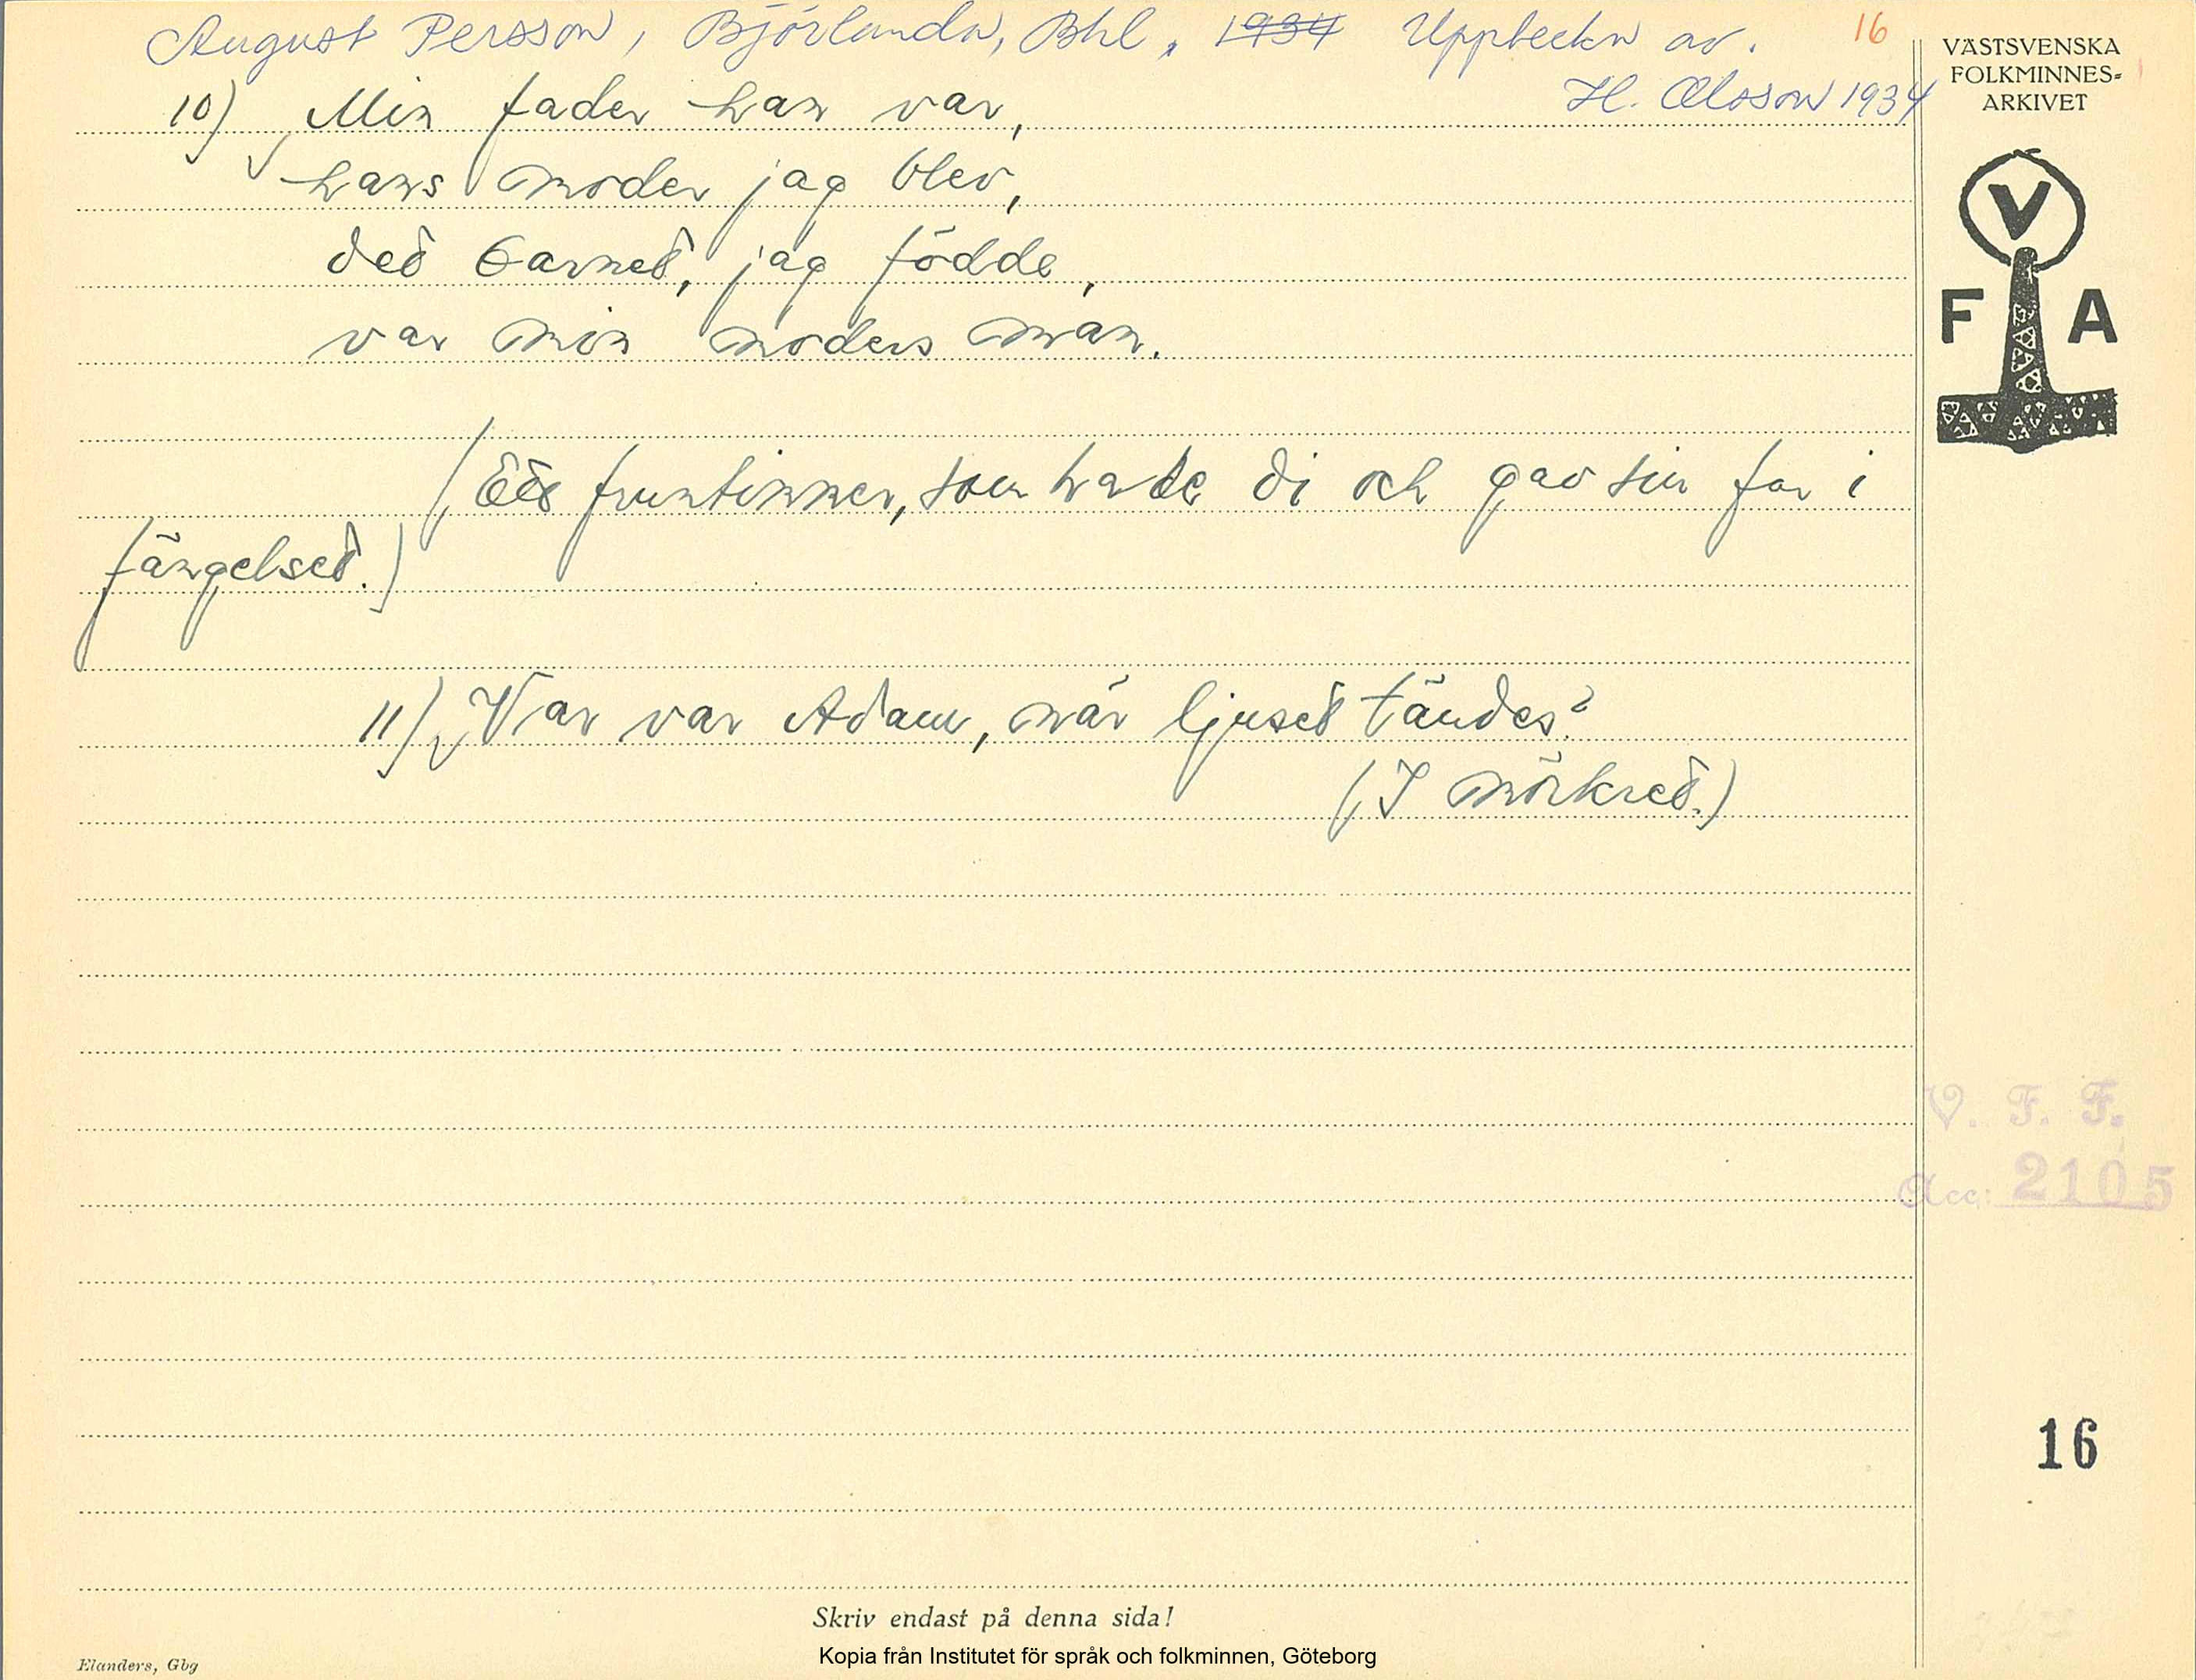 August Persson, Björlanda, Bhl, 1934 Uppteckn av. 16
H. Olsson 1934
VÄSTSVENSKA
FOLKMINNES-
ARKIVET
V
F A
10) Min fader han var,
hans moder jag blev,
det barnet, jag födde,
var min moders man.
(Ett fruntimmer, som hade di och gav sin far i
fängelset.)
11) Var var Adam, när ljuset tändes?
(I mörkret.)
V. F. F.
Acc: 2105
16
Skriv endast på denna sida!
Kopia från Institutet för språk och folkminnen, Göteborg
Elanders, Gbg